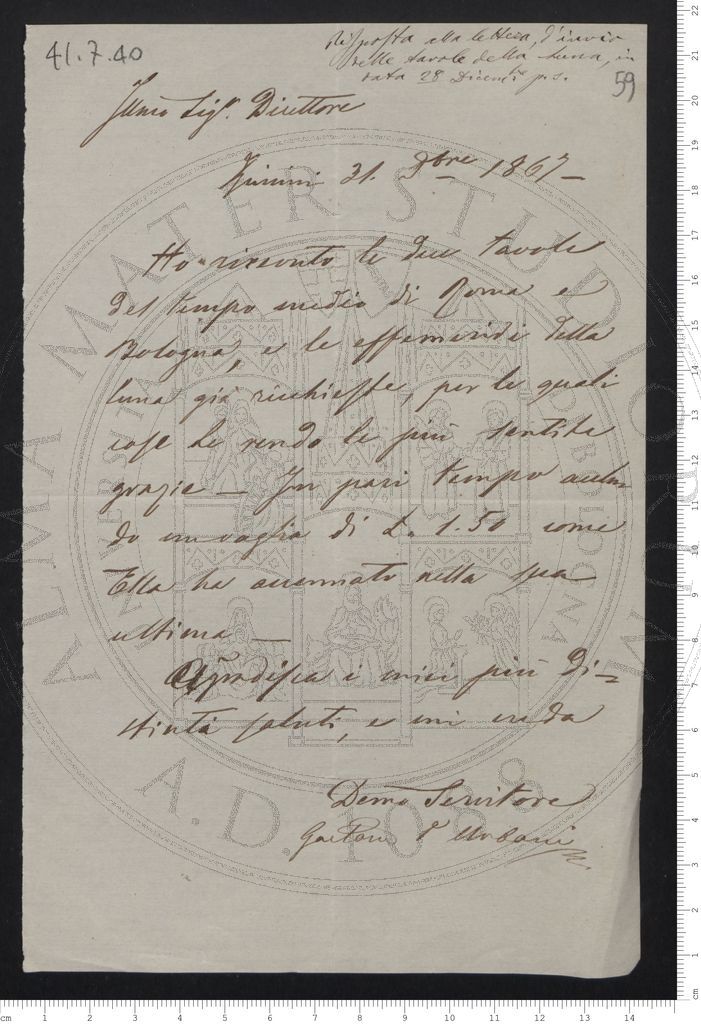 41.7.40
Risposta alla lettera, d'invio
delle tavole della luna, in
data 28 Dicembe p.s.
59
Illmo Sigr. Direttore
Rimini 31. Dbre 1867 —
Ho ricevuto le due tavole
del tempo medio di Roma e
Bologna, e le effemeridi della
luna già richieste, per le quali
cose Le rendo le più sentite
grazie — In pari tempo acclu-
do un vaglia di L. 1.50 come
Ella ha accennato nella sua
ultima —
Aggradisca i miei più di-
stinti saluti, e mi creda
Demo Servitore
Gaetano Urbani
ALMA MATER STUDIORUM
A.D. 1088
cm
1 2 3 4 5 6 7 8 9 10 11 12 13 14
22
21
20
19
18
17
16
15
14
13
12
11
10
9
8
7
6
5
4
3
2
1
cm